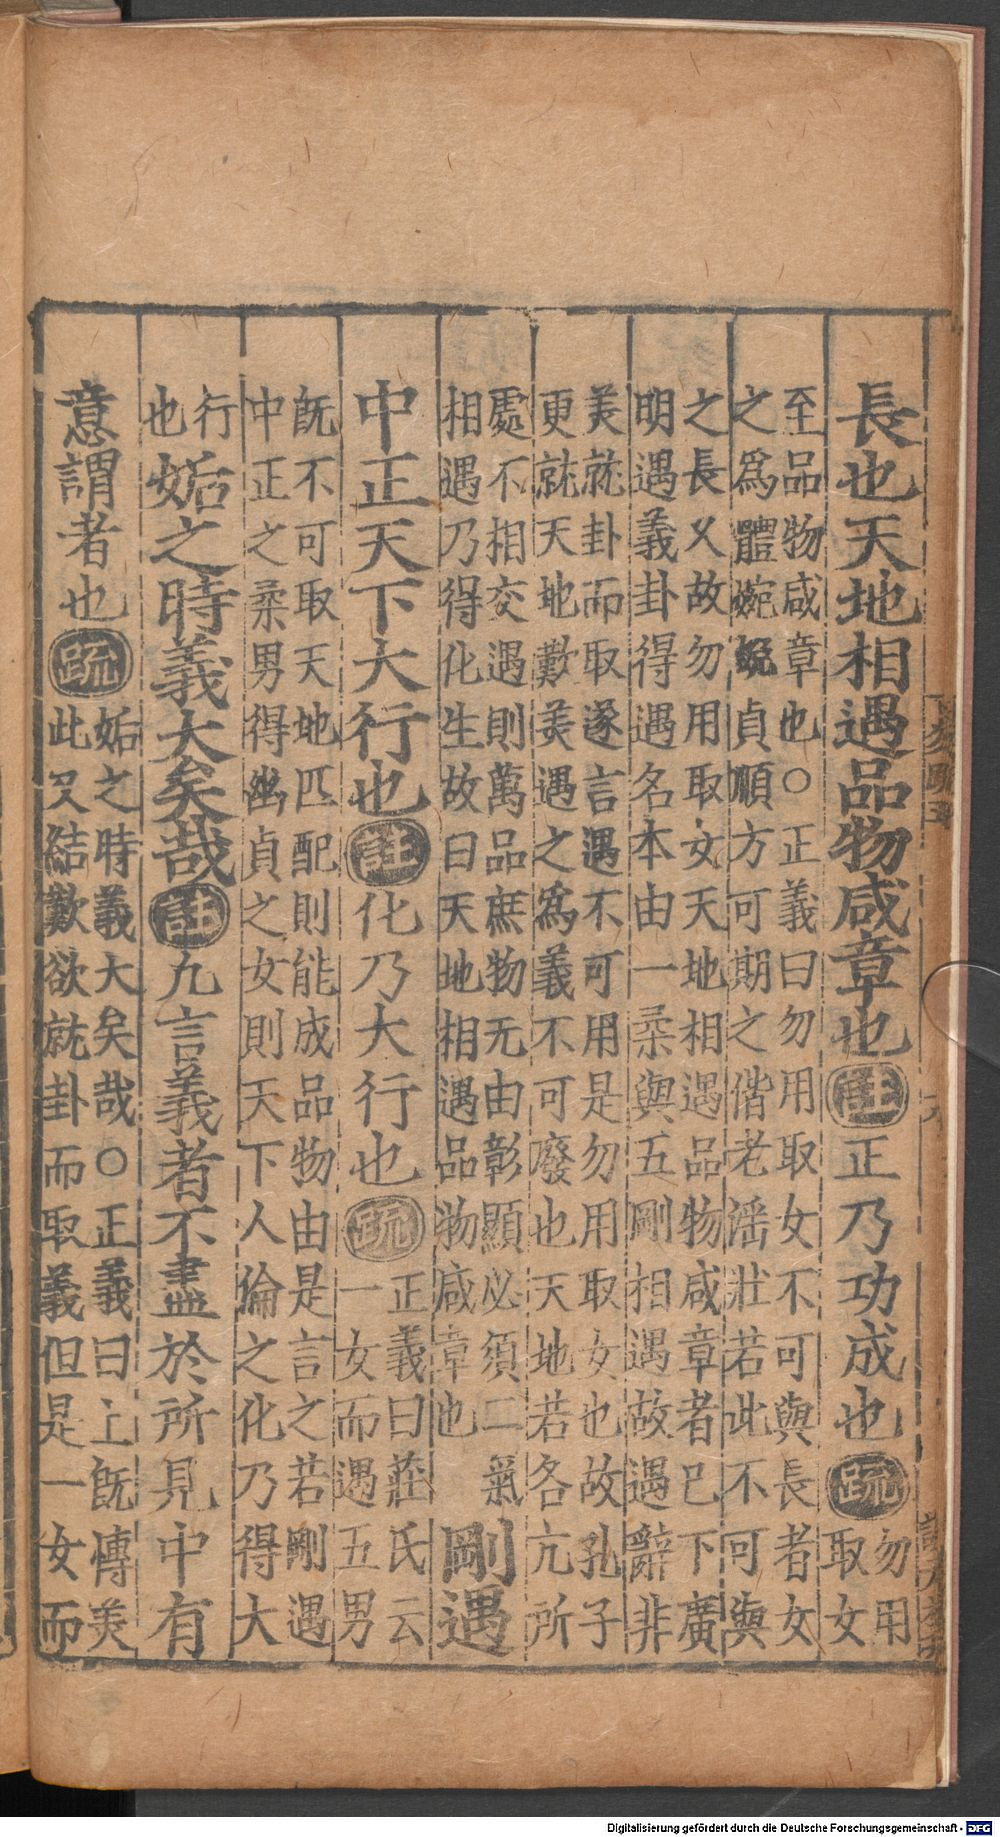 長也天地相遇品物咸章也註正乃功成也疏勿用
取女
至品物咸章也○正義曰勿用取女不可與長者女
之爲體婉娩貞順方可期之偕老淫壯若此不可與
之長乂故勿用取女天地相遇品物咸章者巳下廣
明遇義卦得遇名本由一柔與五剛相遇故遇辭非
羙就卦而取遂言遇不可用是勿用取女也故孔子
更就天地歎羙遇之爲義不可廢也天地若各亢所
處不相交遇則萬品庶物无由彰顯必須二氣
相遇乃得化生故曰天地相遇品物咸章也
剛遇
中正天下大行也註化乃大行也疏正義曰莊氏云
一女而遇五男
旣不可取天地匹配則能成品物由是言之若剛遇
中正之柔男得幽貞之女則天下人倫之化乃得大
行
也姤之時義大矣哉註凢言義者不盡於所見中有
意謂者也疏姤之時義大矣哉○正義曰上旣慱羙
此又結歎欲就卦而取義但是一女而
Digitalisierung gefördert durch die Deutsche Forschungsgemeinschaft - DFG